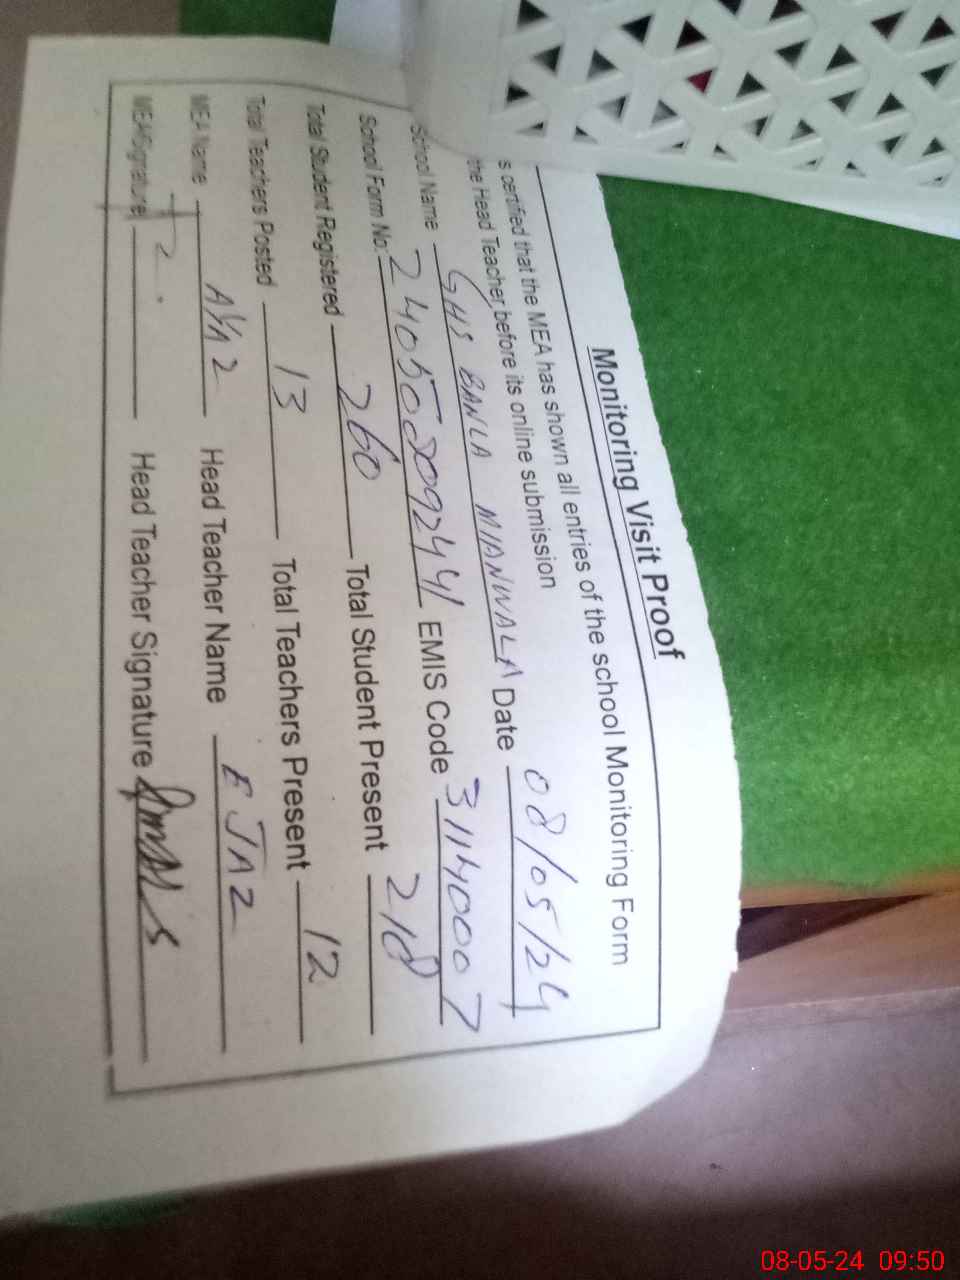 Monitoring Visit Proof
s certified that the MEA has shown all entries of the school Monitoring Form
the Head Teacher before its online submission
School Name GHS BANLA MIANWALA Date 08/05/24
School Form No. EMIS Code 31140007
Total Student Registered 260 Total Student Present 218
Total Teachers Posted 13 Total Teachers Present 12
MEA Name Head Teacher Name EJAZ
MEA Signature Head Teacher Signature
08-05-24 09:50